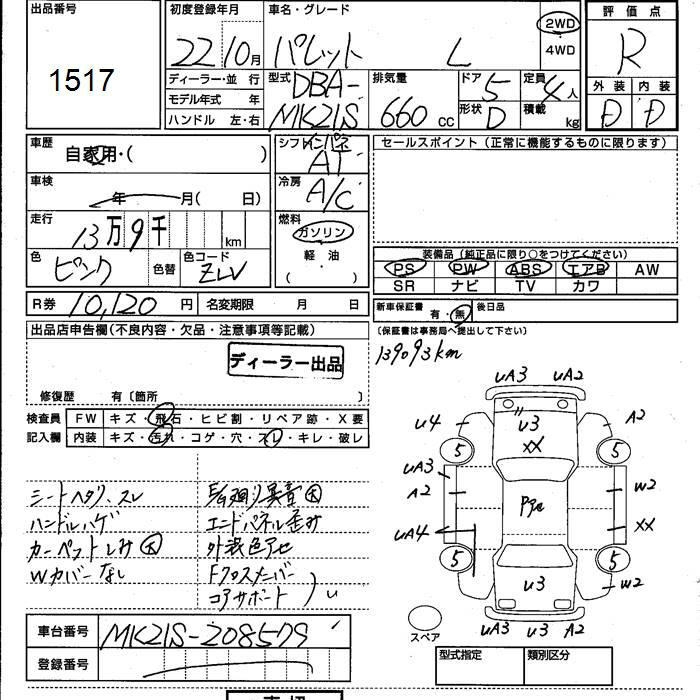 出品番号
1517
初度登録年月
22 10月
車名・グレード
パレット L
2WD
4WD
評価点
R
外装 内装
D D
ディーラー・並行
モデル年式 年
ハンドル 左・右
型式
DBA-
MK21S
排気量
660 cc
ドア
5
形状
D
定員
4人
積載
kg
車歴
自家用・( )
シフト インパネ
AT
セールスポイント(正常に機能するものに限ります)
車検
年 月( 日)
冷房
A/C
走行
13万9千 km
燃料
ガソリン
軽・油
( )
色
ピンク
色替
色コード
ZLV
装備品(純正品に限り○をつけてください)
PS PW ABS エアB AW
SR ナビ TV カワ
R券 10,120 円
名変期限 月 日
新車保証書 有・無
後日品
(保証書は事務局へ提出して下さい)
139093km
出品店申告欄(不良内容・欠品・注意事項等記載)
ディーラー出品
修復歴 有〔箇所 〕
検査員
記入欄
FW キズ・飛石・ヒビ割・リペア跡・X要
内装 キズ・汚れ・コゲ・穴・スレ・キレ・破レ
シートヘタリ、スレ
ハンドルハゲ
カーペットしみ大
Wカバーなし
異音大
エンドパネル歪み
外装色アセ
Fクロスメンバー
コアサポート
uA3 uA2
u4 u3 A2
XX
5 5
uA3
A2
W2
Pgu
uA4
XX
5 5
u3
W2
uA3 u3 A2
スペア
車台番号 MK21S-208579
登録番号
型式指定 類別区分